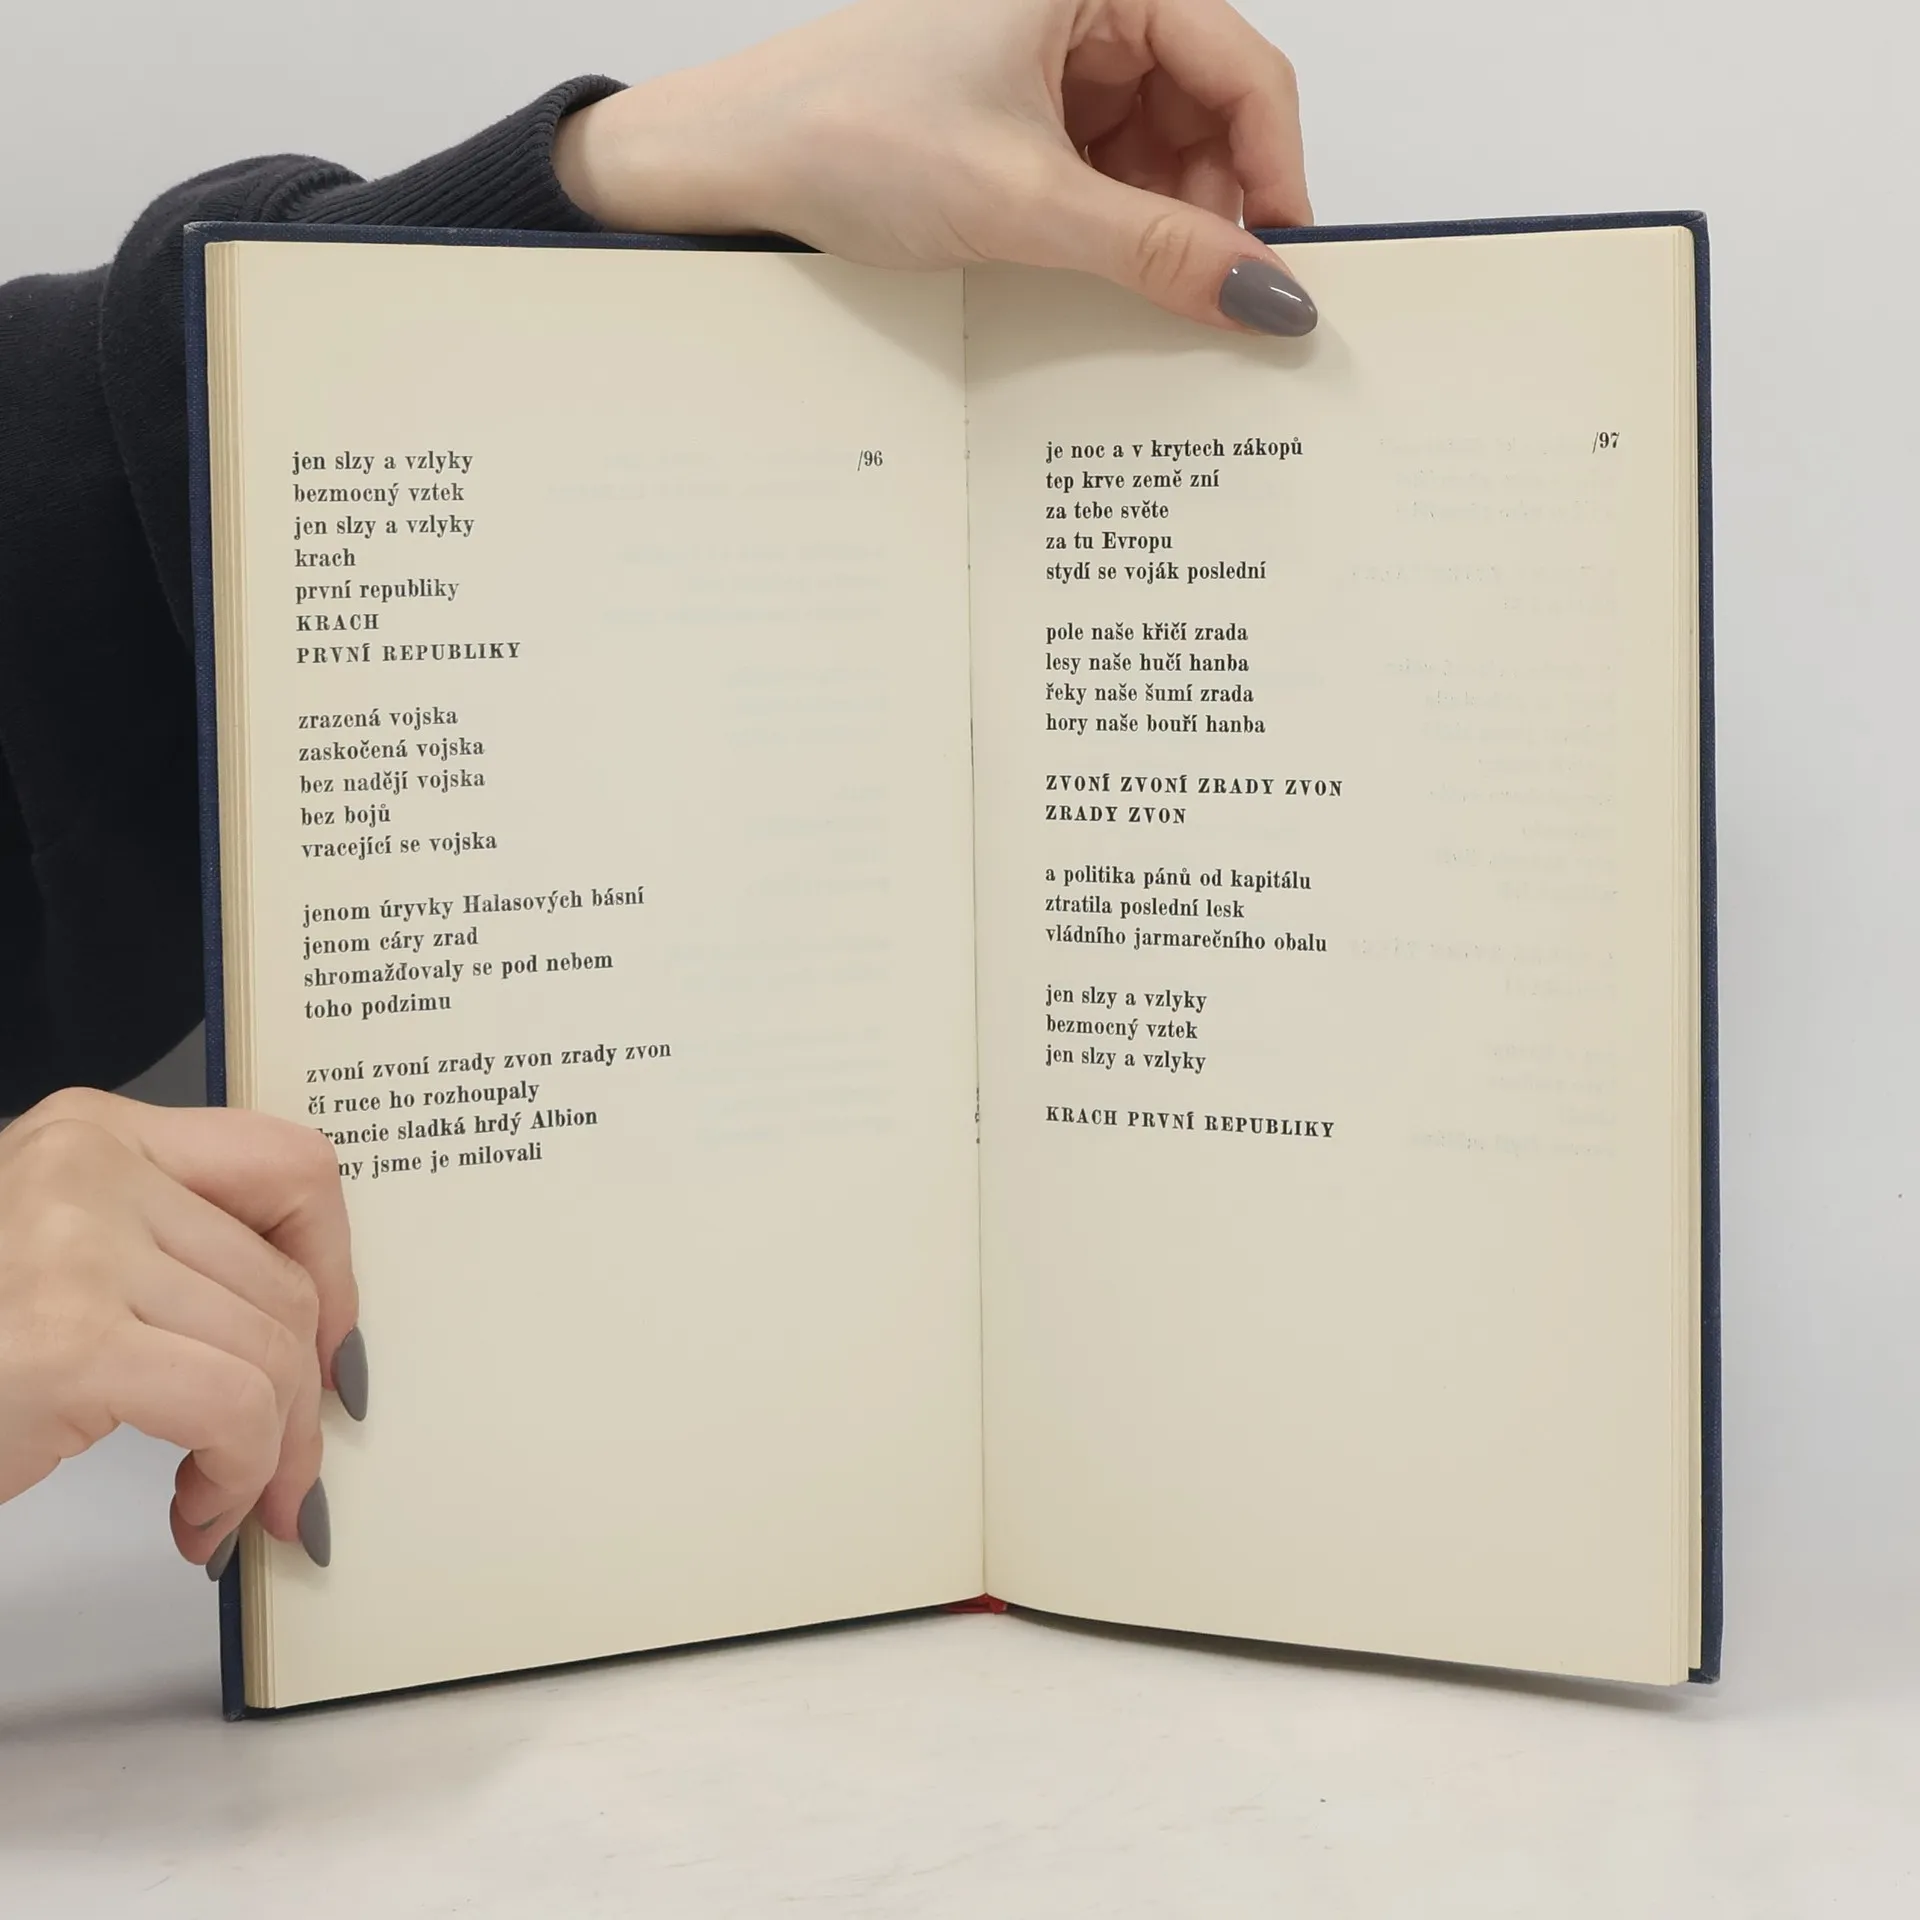 jen slzy a vzlyky
/96
bezmocný vztek
jen slzy a vzlyky
krach
první republiky
KRACH
PRVNÍ REPUBLIKY
zrazená vojska
zaskočená vojska
bez nadějí vojska
bez bojů
vracející se vojska
jenom úryvky Halasových básní
jenom cáry zrad
shromažďovaly se pod nebem
toho podzimu
zvoní zvoní zrady zvon zrady zvon
čí ruce ho rozhoupaly
sladká hrdý Albion
my jsme je milovali
je noc a v krytech zákopů
/97
tep krve země zní
za tebe světe
za tu Evropu
stydí se voják poslední
pole naše křičí zrada
lesy naše hučí hanba
řeky naše šumí zrada
hory naše bouří hanba
ZVONÍ ZVONÍ ZRADY ZVON
ZRADY ZVON
a politika pánů od kapitálu
ztratila poslední lesk
vládního jarmarečního obalu
jen slzy a vzlyky
bezmocný vztek
jen slzy a vzlyky
KRACH PRVNÍ REPUBLIKY